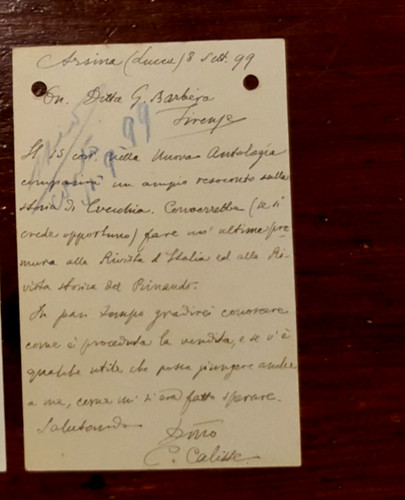 Arsina (Lucca) 8 Sett. 99
On. Ditta G. Barbèra
Firenze
99
Il 15 cor. nella Nuova Antologia
comparirà un ampio resoconto sulla
storia di Civ.vecchia. Converrebbe (se si
crede opportuno) fare un' ultima pre
mura alla Rivista d'Italia ed alla Ri-
vista storica del Rinaudo.
In pari tempo gradirei conoscere
come è proceduta la vendita, e se v'è
qualche utile che possa giungere anche
a me, come mi si era fatto sperare.
Salutando
Dvmo
C. Calisse